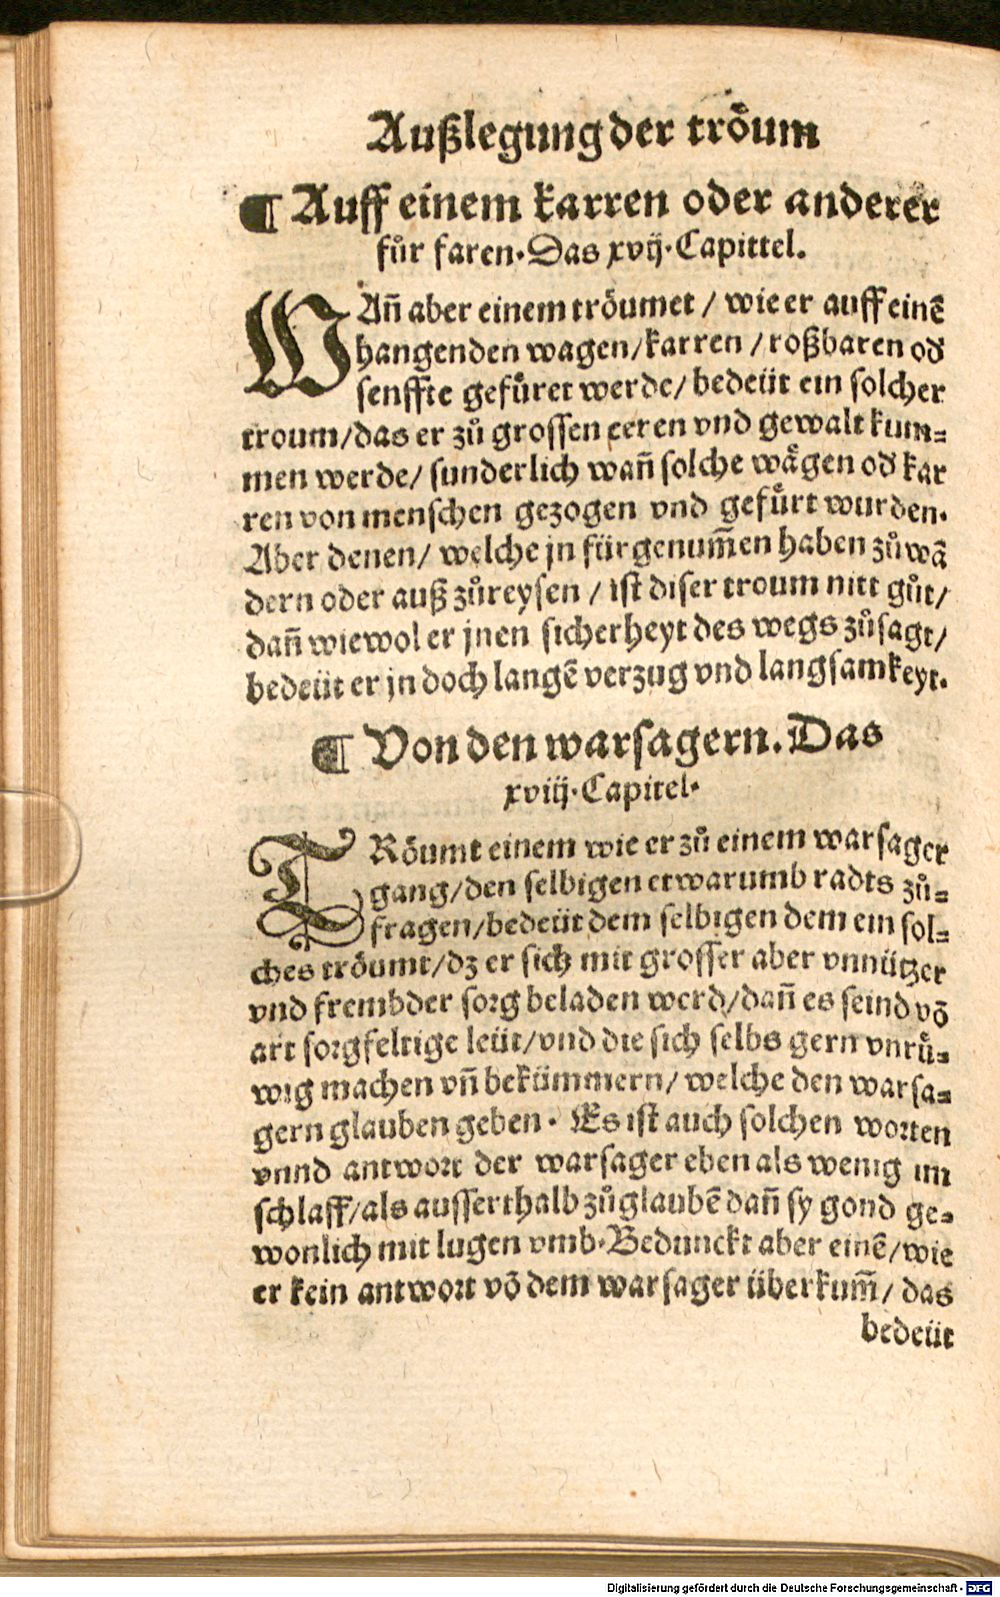 Außlegung der tröum
¶ Auff einem karren oder anderer
für faren. Das xvij. Capittel.
WAñ aber einem tröumet / wie er auff einē
hangenden wagen / karren / roßbaren oď
senffte gefüret werde / bedeüt ein solcher
troum / das er zů grossen eeren vnd gewalt kum⸗
men werde / sunderlich wañ solche wägen oď kar
ren von menschen gezogen vnd gefürt wurden.
Aber denen / welche jn für genum̃en haben zůwā
dern oder auß zůreysen / ist diser troum nitt gůt /
dañ wiewol er jnen sicherheyt des wegs zůsagt /
bedeüt er jn doch langē verzug vnd langsamkeyt.
¶ Von den warsagern. Das
xviij. Capitel.
TRöumt einem wie er zů einem warsager
gang / den selbigen etwarumb radts zů⸗
fragen / bedeüt dem selbigen dem ein sol⸗
ches tröumt / dz er sich mit grosser aber vnnützer
vnd frembder sorg beladen werd / dañ es seind vō
art sorgfeltige leüt / vnd die sich selbs gern vnrů⸗
wig machen vñ bekümmern / welche den warsa⸗
gern glauben geben. Es ist auch solchen worten
vnnd antwort der warsager eben als wenig im
schlaff / als ausserthalb zůglaubē dañ sy gond ge⸗
wonlich mit lugen vmb. Bedunckt aber einē / wie
er kein antwort vō dem warsager überkum̃ / das
bedeüt
Digitalisierung gefördert durch die Deutsche Forschungsgemeinschaft - DFG